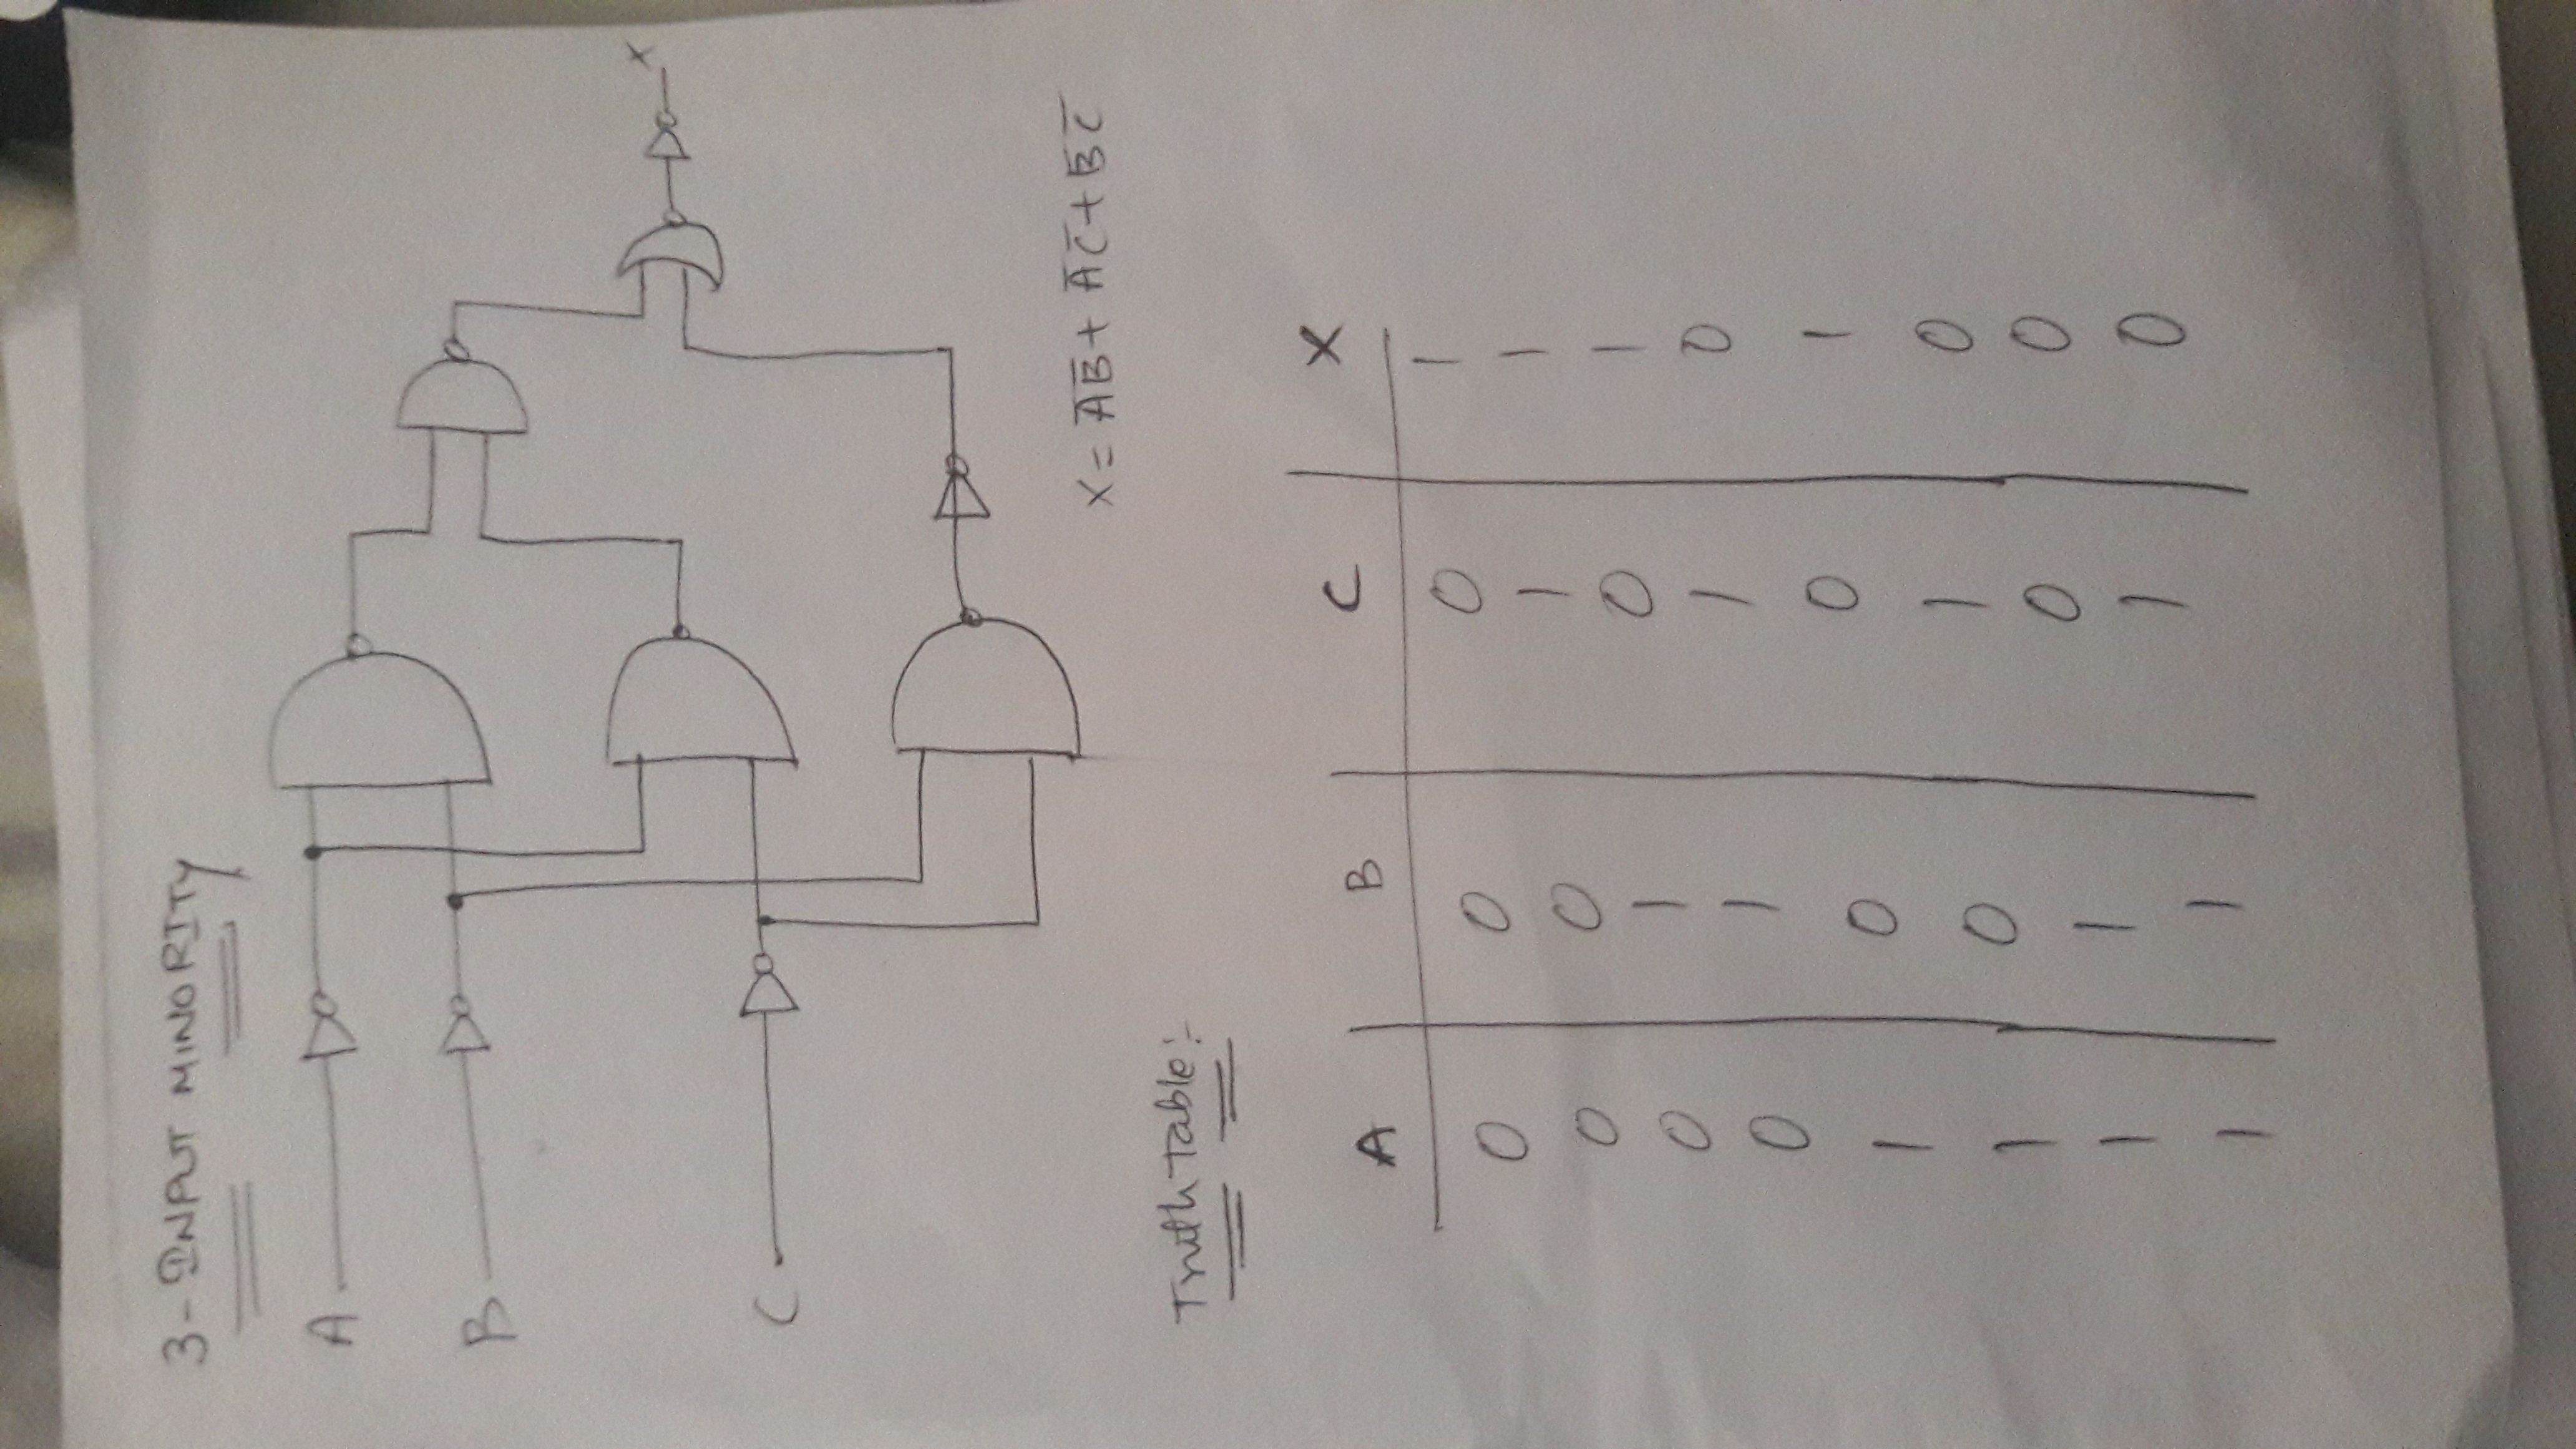 3-INPUT MINORITY
A
B
C
X
X = A̅B̅ + A̅C̅ + B̅C̅
Truth Table:-
A B C X
0 0 0 1
0 0 1 1
0 1 0 1
0 1 1 0
1 0 0 1
1 0 1 0
1 1 0 0
1 1 1 0